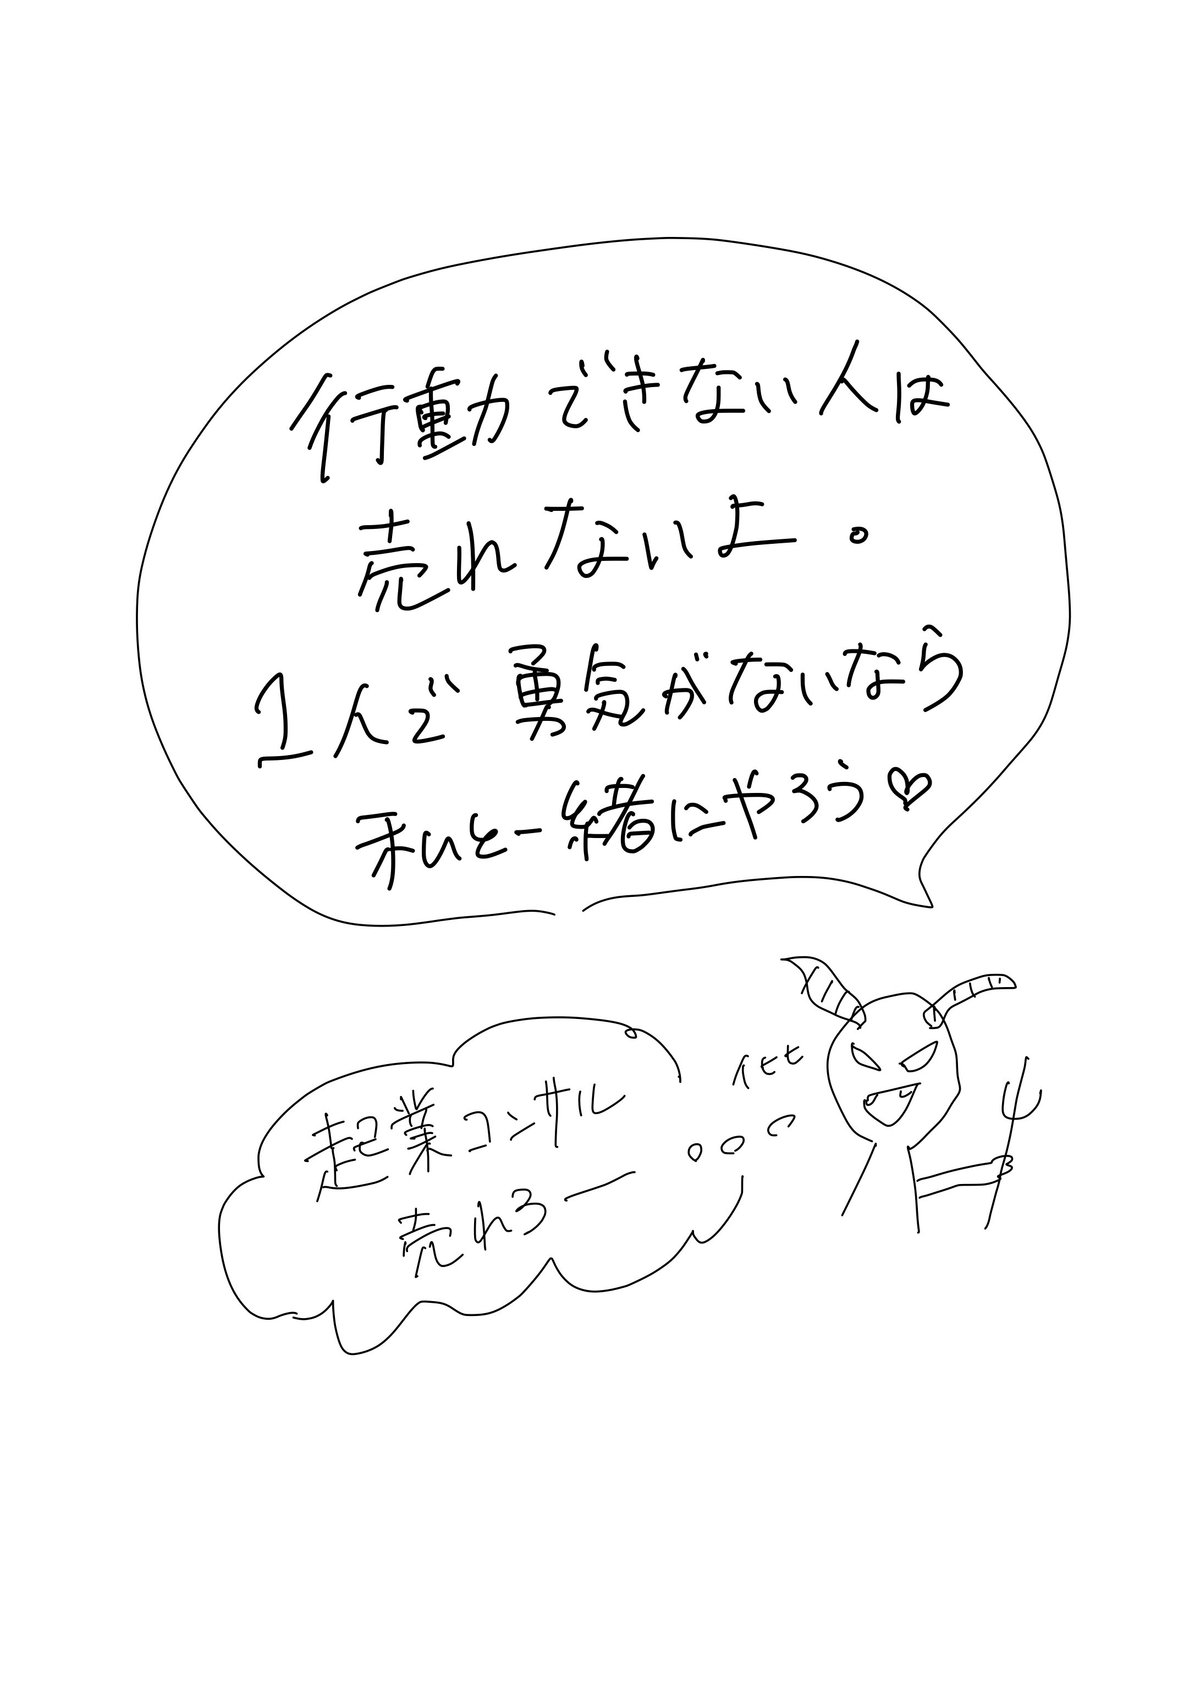 行動できない人は
売れないよ。
1人で勇気がないなら
私と一緒にやろう♡
イヒヒ
起業コンサル
売れろー